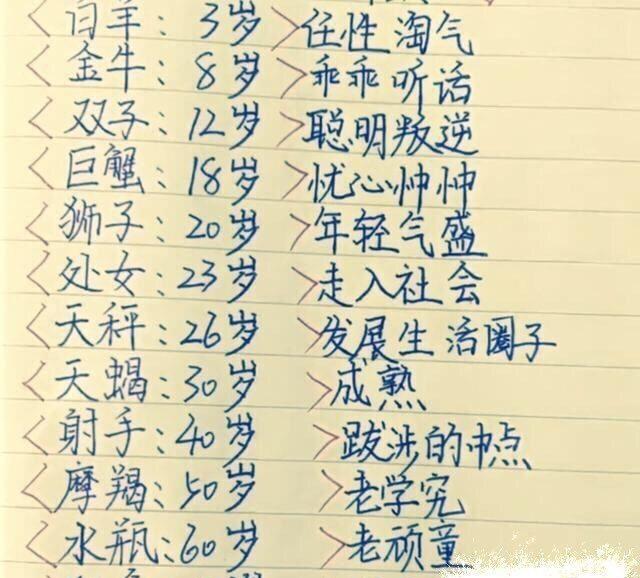 <白羊：3岁>任性淘气
<金牛：8岁>乖乖听话
<双子：12岁>聪明叛逆
<巨蟹：18岁>忧心忡忡
<狮子：20岁>年轻气盛
<处女：23岁>走入社会
<天秤：26岁>发展生活圈子
<天蝎：30岁>成熟
<射手：40岁>跋涉的中点
<摩羯：50岁>老学究
<水瓶：60岁>老顽童